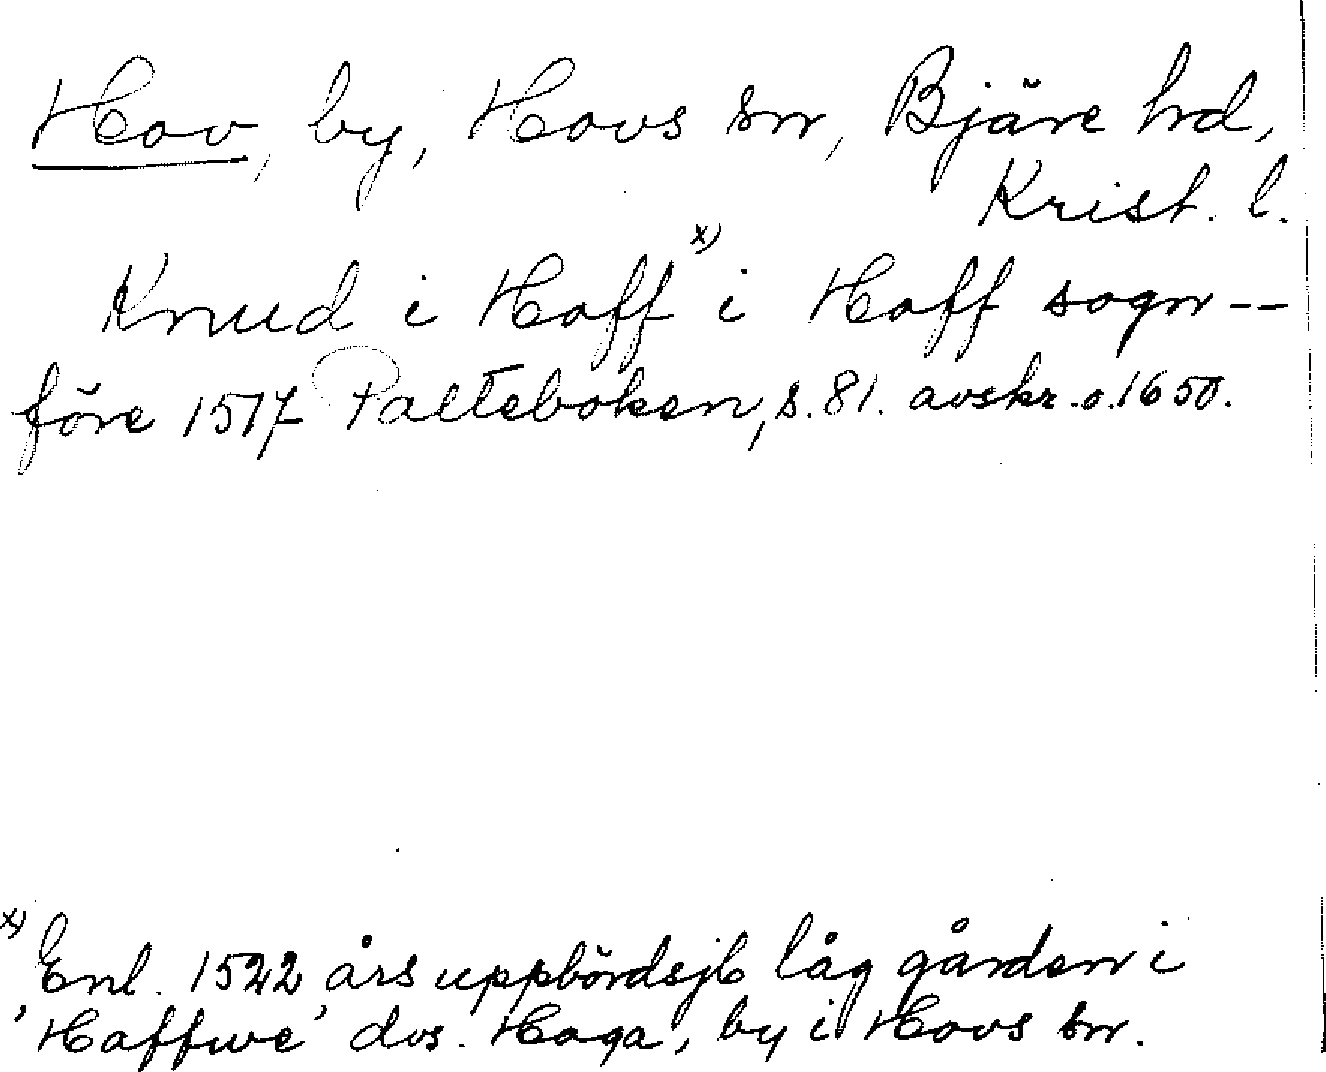 Hov, by, Hovs sn, Bjäre hd,
Krist. l.
Knud i Hoff x) i Hoff sogn --
före 1517 Palteboken, s. 81. avskr. o. 1650.
x) Enl. 1522 års uppbördsjb låg gården i
'Haffwe' dvs. Haga, by i Hovs sn.